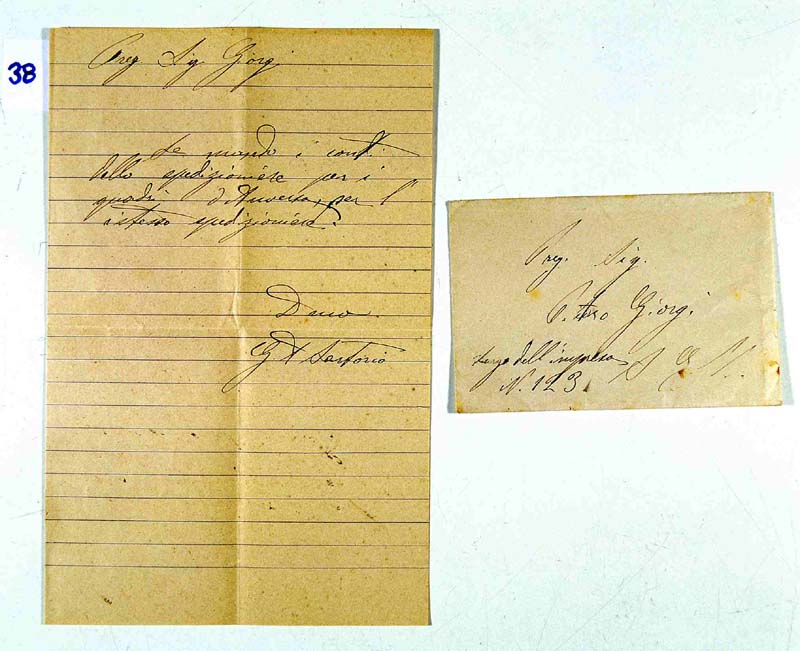 38
Preg. Sig. Giorgi
Le mando i conti
dello spedizioniere per i
quadri d'Anversa, per l'
istesso spedizioniere.
Devo
G A Sartorio
Preg. Sig.
Pietro Giorgi
Largo dell'impresa
N. 123